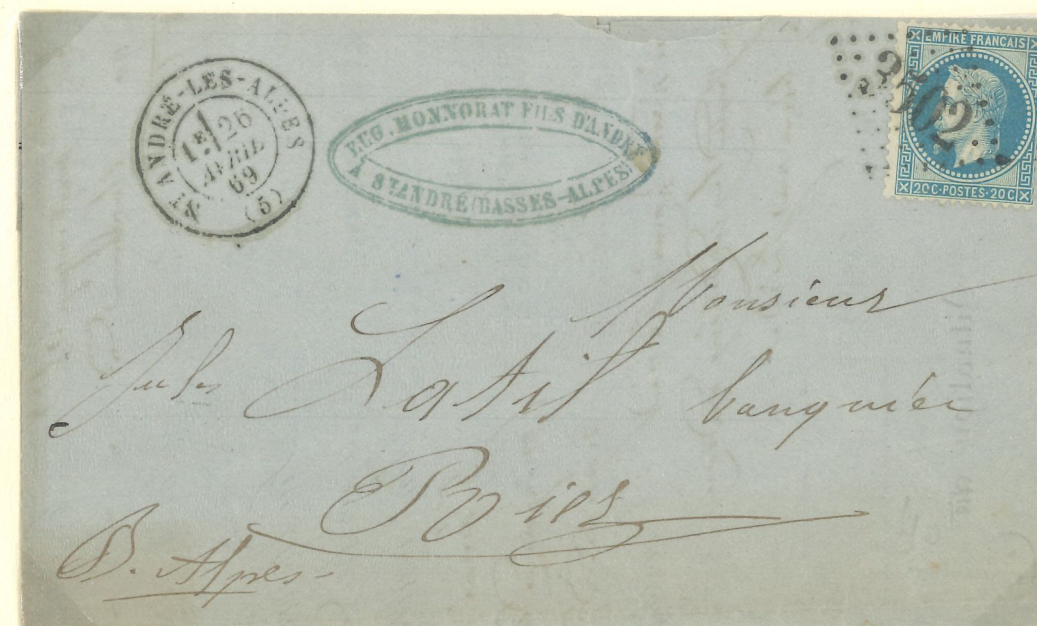 ST ANDRÉ-LES-ALPES
1E/
26
AVRIL
69
(5)
EUG. MONNORAT FILS D'ANDRÉ
A ST ANDRÉ (BASSES-ALPES)
EMPIRE FRANCAIS
3502
20C·POSTES·20C
Monsieur
Jules Latil banquier
Riez
B. Alpes